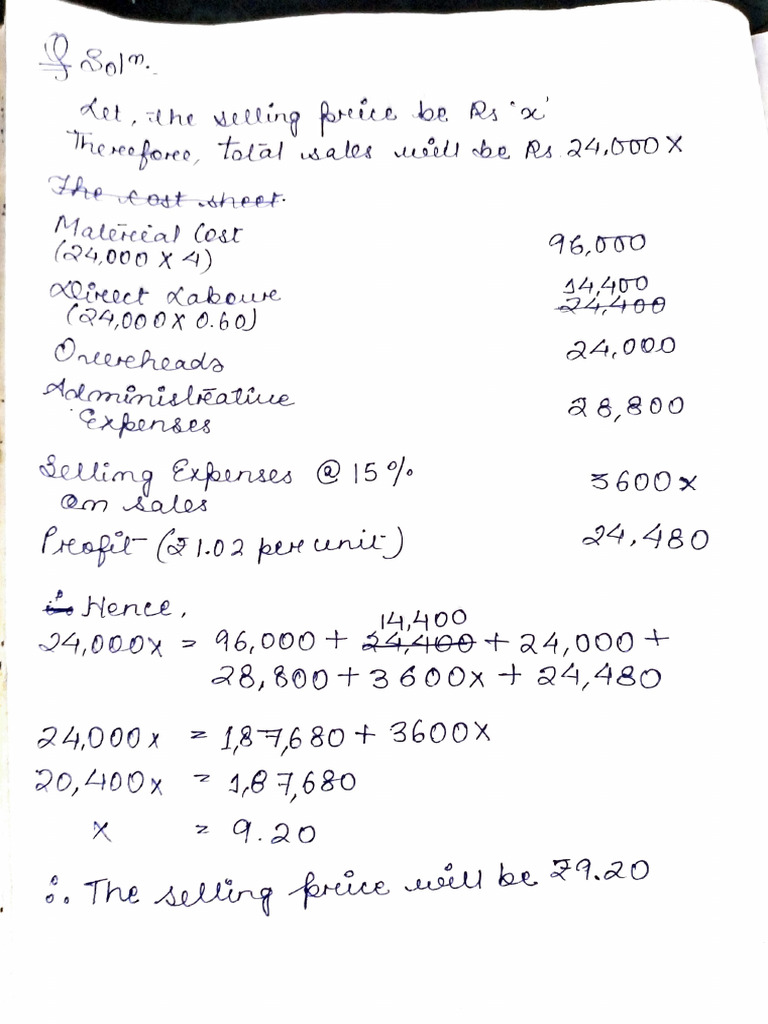 Q Soln.
Let, the selling price be Rs 'x'
Therefore, total sales will be Rs 24,000 X
The cost sheet.
Material Cost 96,000
(24,000 X 4)
Direct Labour 14,400
24,400
(24,000 X 0.60)
Overheads 24,000
Administrative 28,800
Expenses
Selling Expenses @ 15% 3600x
on sales
Profit (₹1.02 per unit) 24,480
Hence,
14,400
24,000x = 96,000 + 24,400 + 24,000 +
28,800 + 3600x + 24,480
24,000x = 1,87,680 + 3600x
20,400x = 1,87,680
x = 9.20
∴ The selling price will be ₹9.20